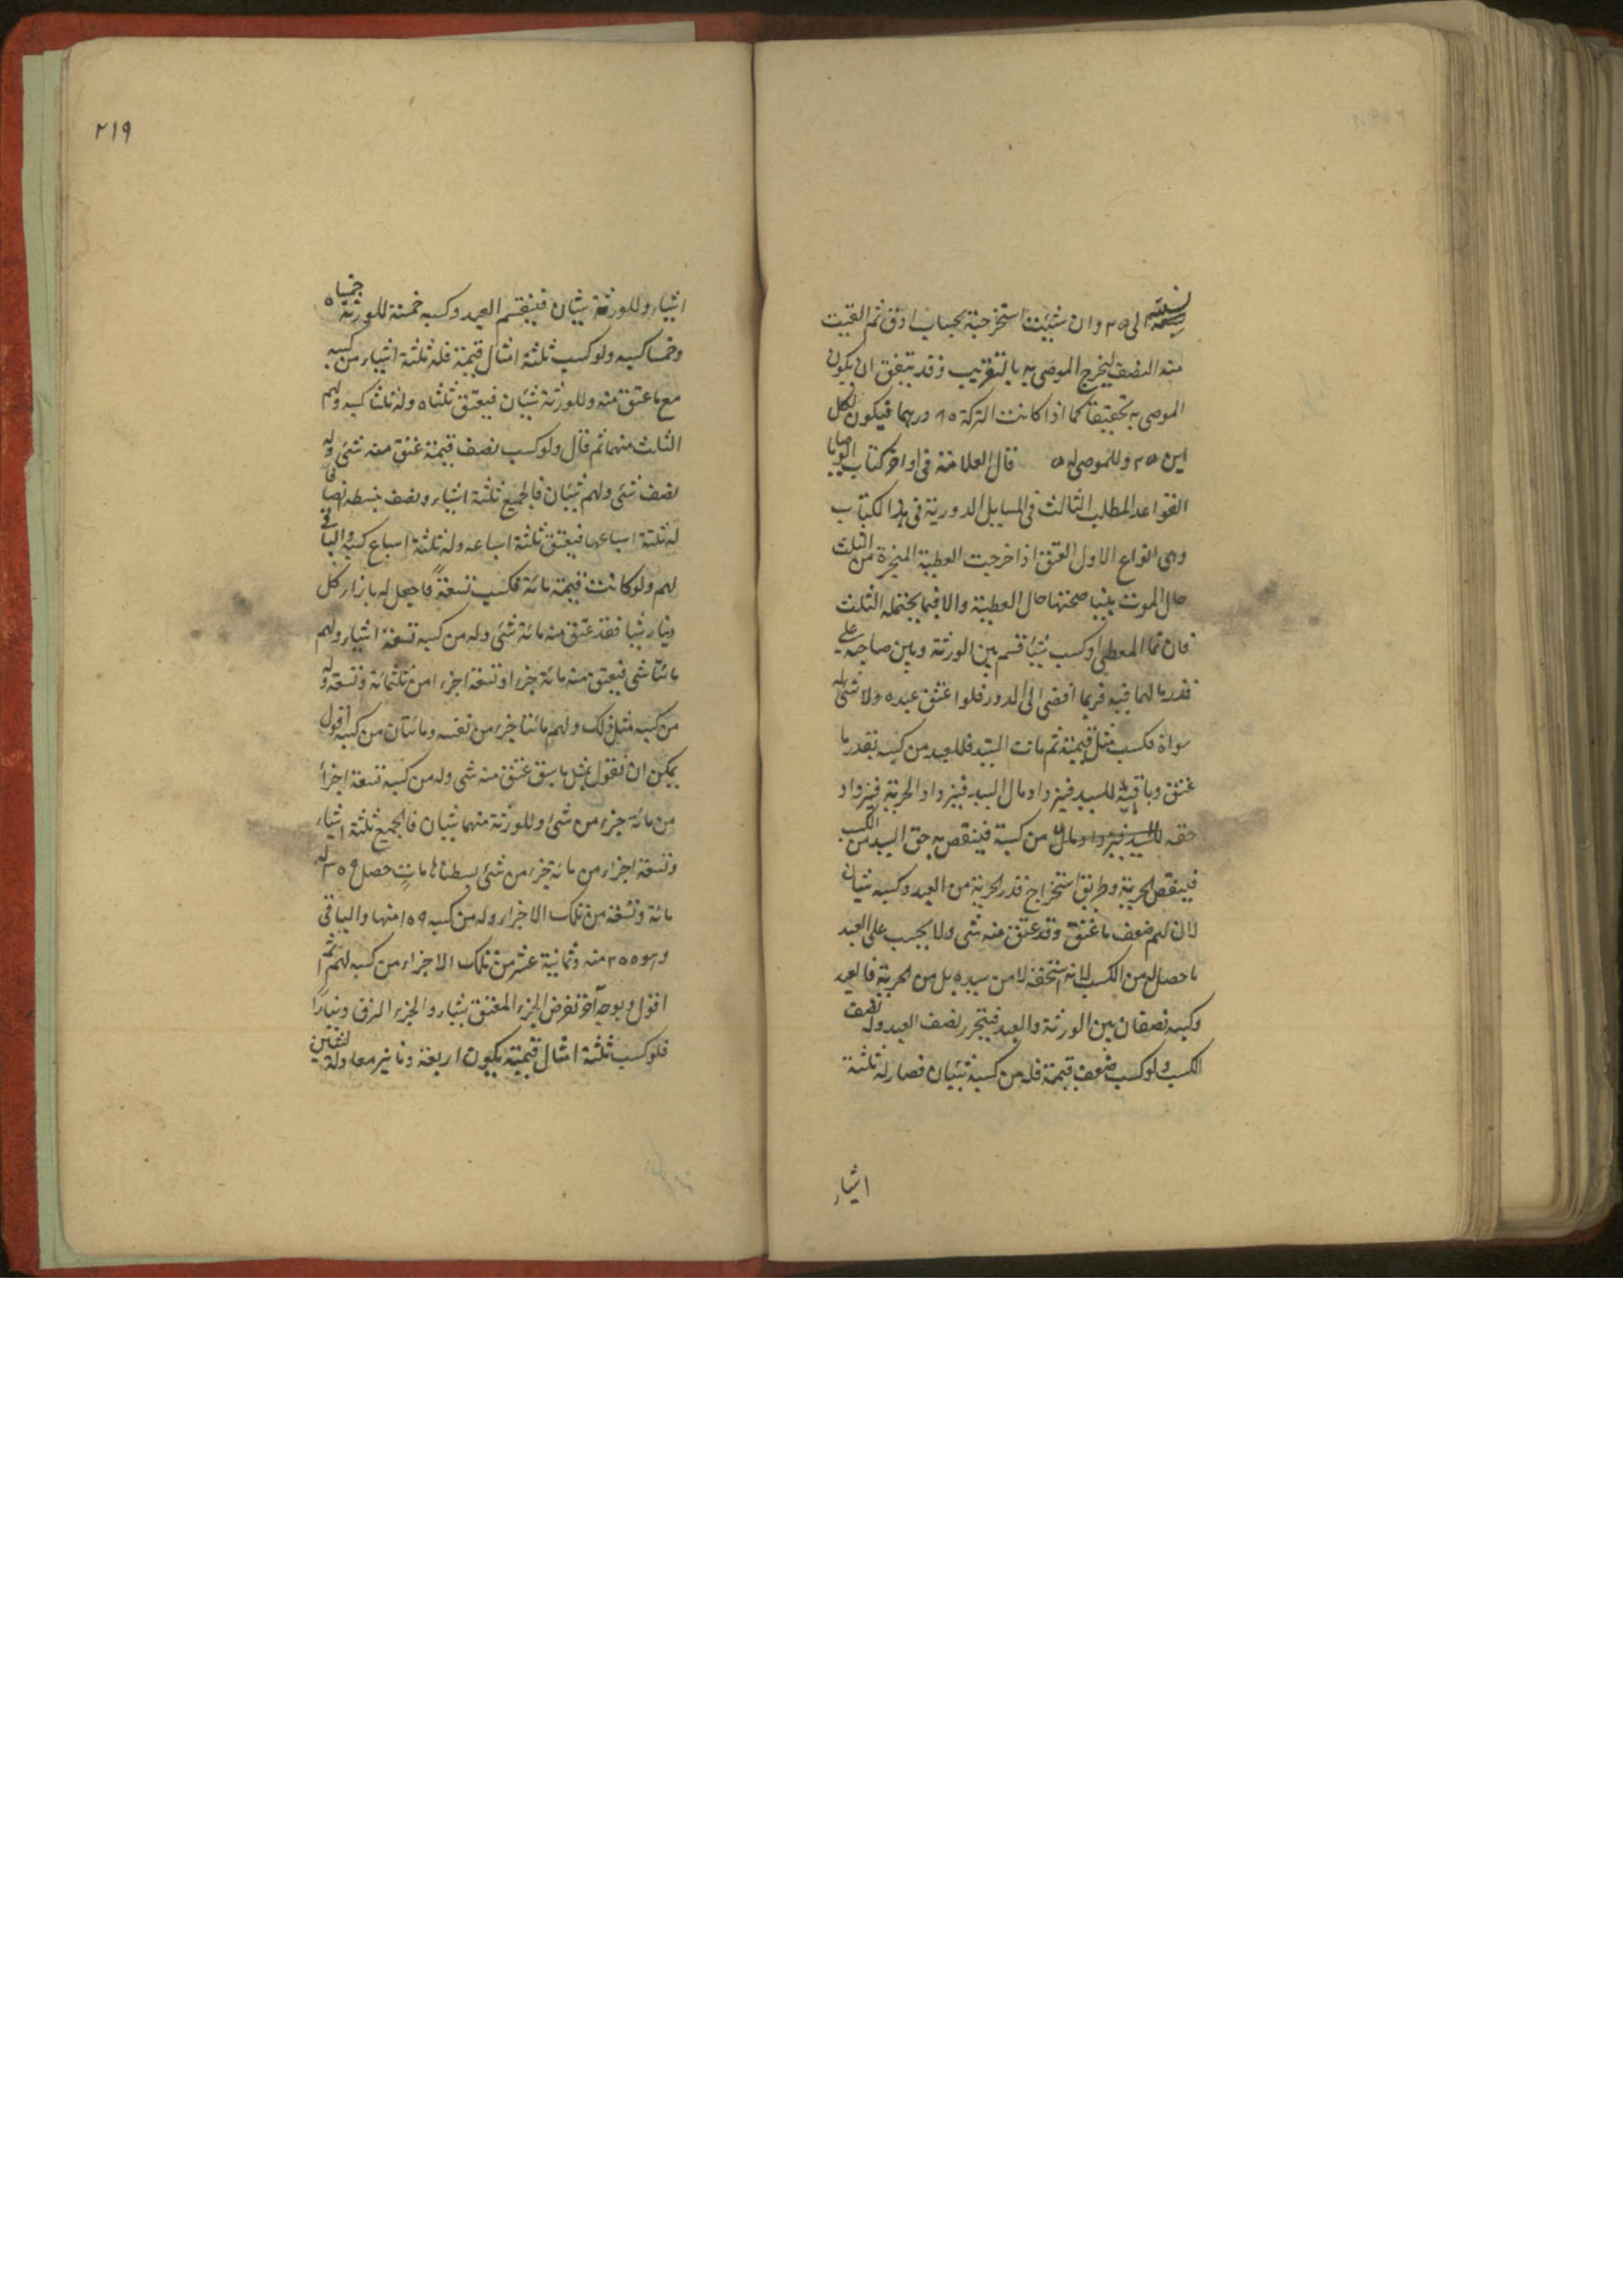 الى ٢٥ وان شئت استخرجته بحساب ادق ثم القيت
منه النصف ليخرج الموصى به بالتقريب وقد يتفق ان يكون
الموصى به تحقيقا كما اذا كانت التركة ٦٥ درهما فيكون لكل
ابن ٢٥ وللموصى له ٥ قال العلامة فى اواخر كتاب الوصايا
القواعد المطلب الثالث فى المسايل الدورية فى هذا الكتاب
وهى انواع الاول العتق اذا خرجت العطية المنجزة من الثلث
حال الموت بينا صحتها حال العطية والا فيما يحتمله الثلث
فان نما المعطى او كسب شيئا قسم بين الورثة وبين صاحبه على
قدر ما لهما فيه فربما افضى الى الدور فلو اعتق عبده ولا شئ له
سواه فكسب مثل قيمته ثم مات السيد فللعبد من كسبه بقدر ما
عتق وباقيه للسيد فيزداد مال السيد فيزداد الحرية فيزداد
حقه من كسبه فينقص به حق السيد من الكسب
فينقص الحرية وطريق استخراج قدر الحرية من العبد وكسبه شيئان
لان لهم ضعف ما عتق وقد عتق منه شى ولا يحسب على العبد
ما حصل له من الكسب لانه استحقه لا من سيده بل من الحرية فالعبد
وكسبه نصفان بين الورثة والعبد فيتحرر نصف العبد وله نصف
الكسب ولو كسب ضعف قيمته فله من كسبه شيئان فصار له ثلثة
اشياء
٢١٩
اشياء وللورثة شيئان فينقسم العبد وكسبه خمسة للورثة خمساه
وخمسا كسبه ولو كسب ثلثة امثال قيمته فله ثلثة اشياء من كسبه
مع ما عتق منه وللورثة شيئان فيعتق ثلثاه وله ثلثا كسبه ولهم
الثلث منهما ثم قال ولو كسب نصف قيمته عتق منه شئ وله
نصف شئ ولهم شيئان فالجميع ثلثة اشياء ونصف نبسطه انصافا
له ثلثة اسباعها فيعتق ثلثة اسباعه وله ثلثة اسباع كسبه والباقى
لهم ولو كانت قيمته مائة فكسب تسعة فاجعل له بازاء كل
دينار شيئا فقد عتق منه مائة شئ وله من كسبه تسعة اشياء ولهم
مائتا شى فيعتق منه مائة جزء وتسعة اجزاء من ثلثمائة وتسعة وله
من كسبه مثل ذلك ولهم مائتا جزء من نفسه ومائتان من كسبه اقول
يمكن ان نقول بمثل ما سبق عتق منه شى وله من كسبه تسعة اجزاء
من مائة جزء من شئ وللورثة منهما شيئان فالجميع ثلثة اشياء
وتسعة اجزاء من مائة جزء من شئ بسطناها مات حصل ٣٥٩ له
مائة وتسعة من تلك الاجزاء وله من كسبه ١٥٩ منها والباقى
وهو ٢٥٥ منه وثمانية عشر من تلك الاجزاء من كسبه لهم ثم
اقول وبوجه آخر نفرض الجزء المعتق بشئ والجزء الرق دينارا
فلو كسب ثلثة امثال قيمته يكون اربعة دنانير معادلة لشيئين